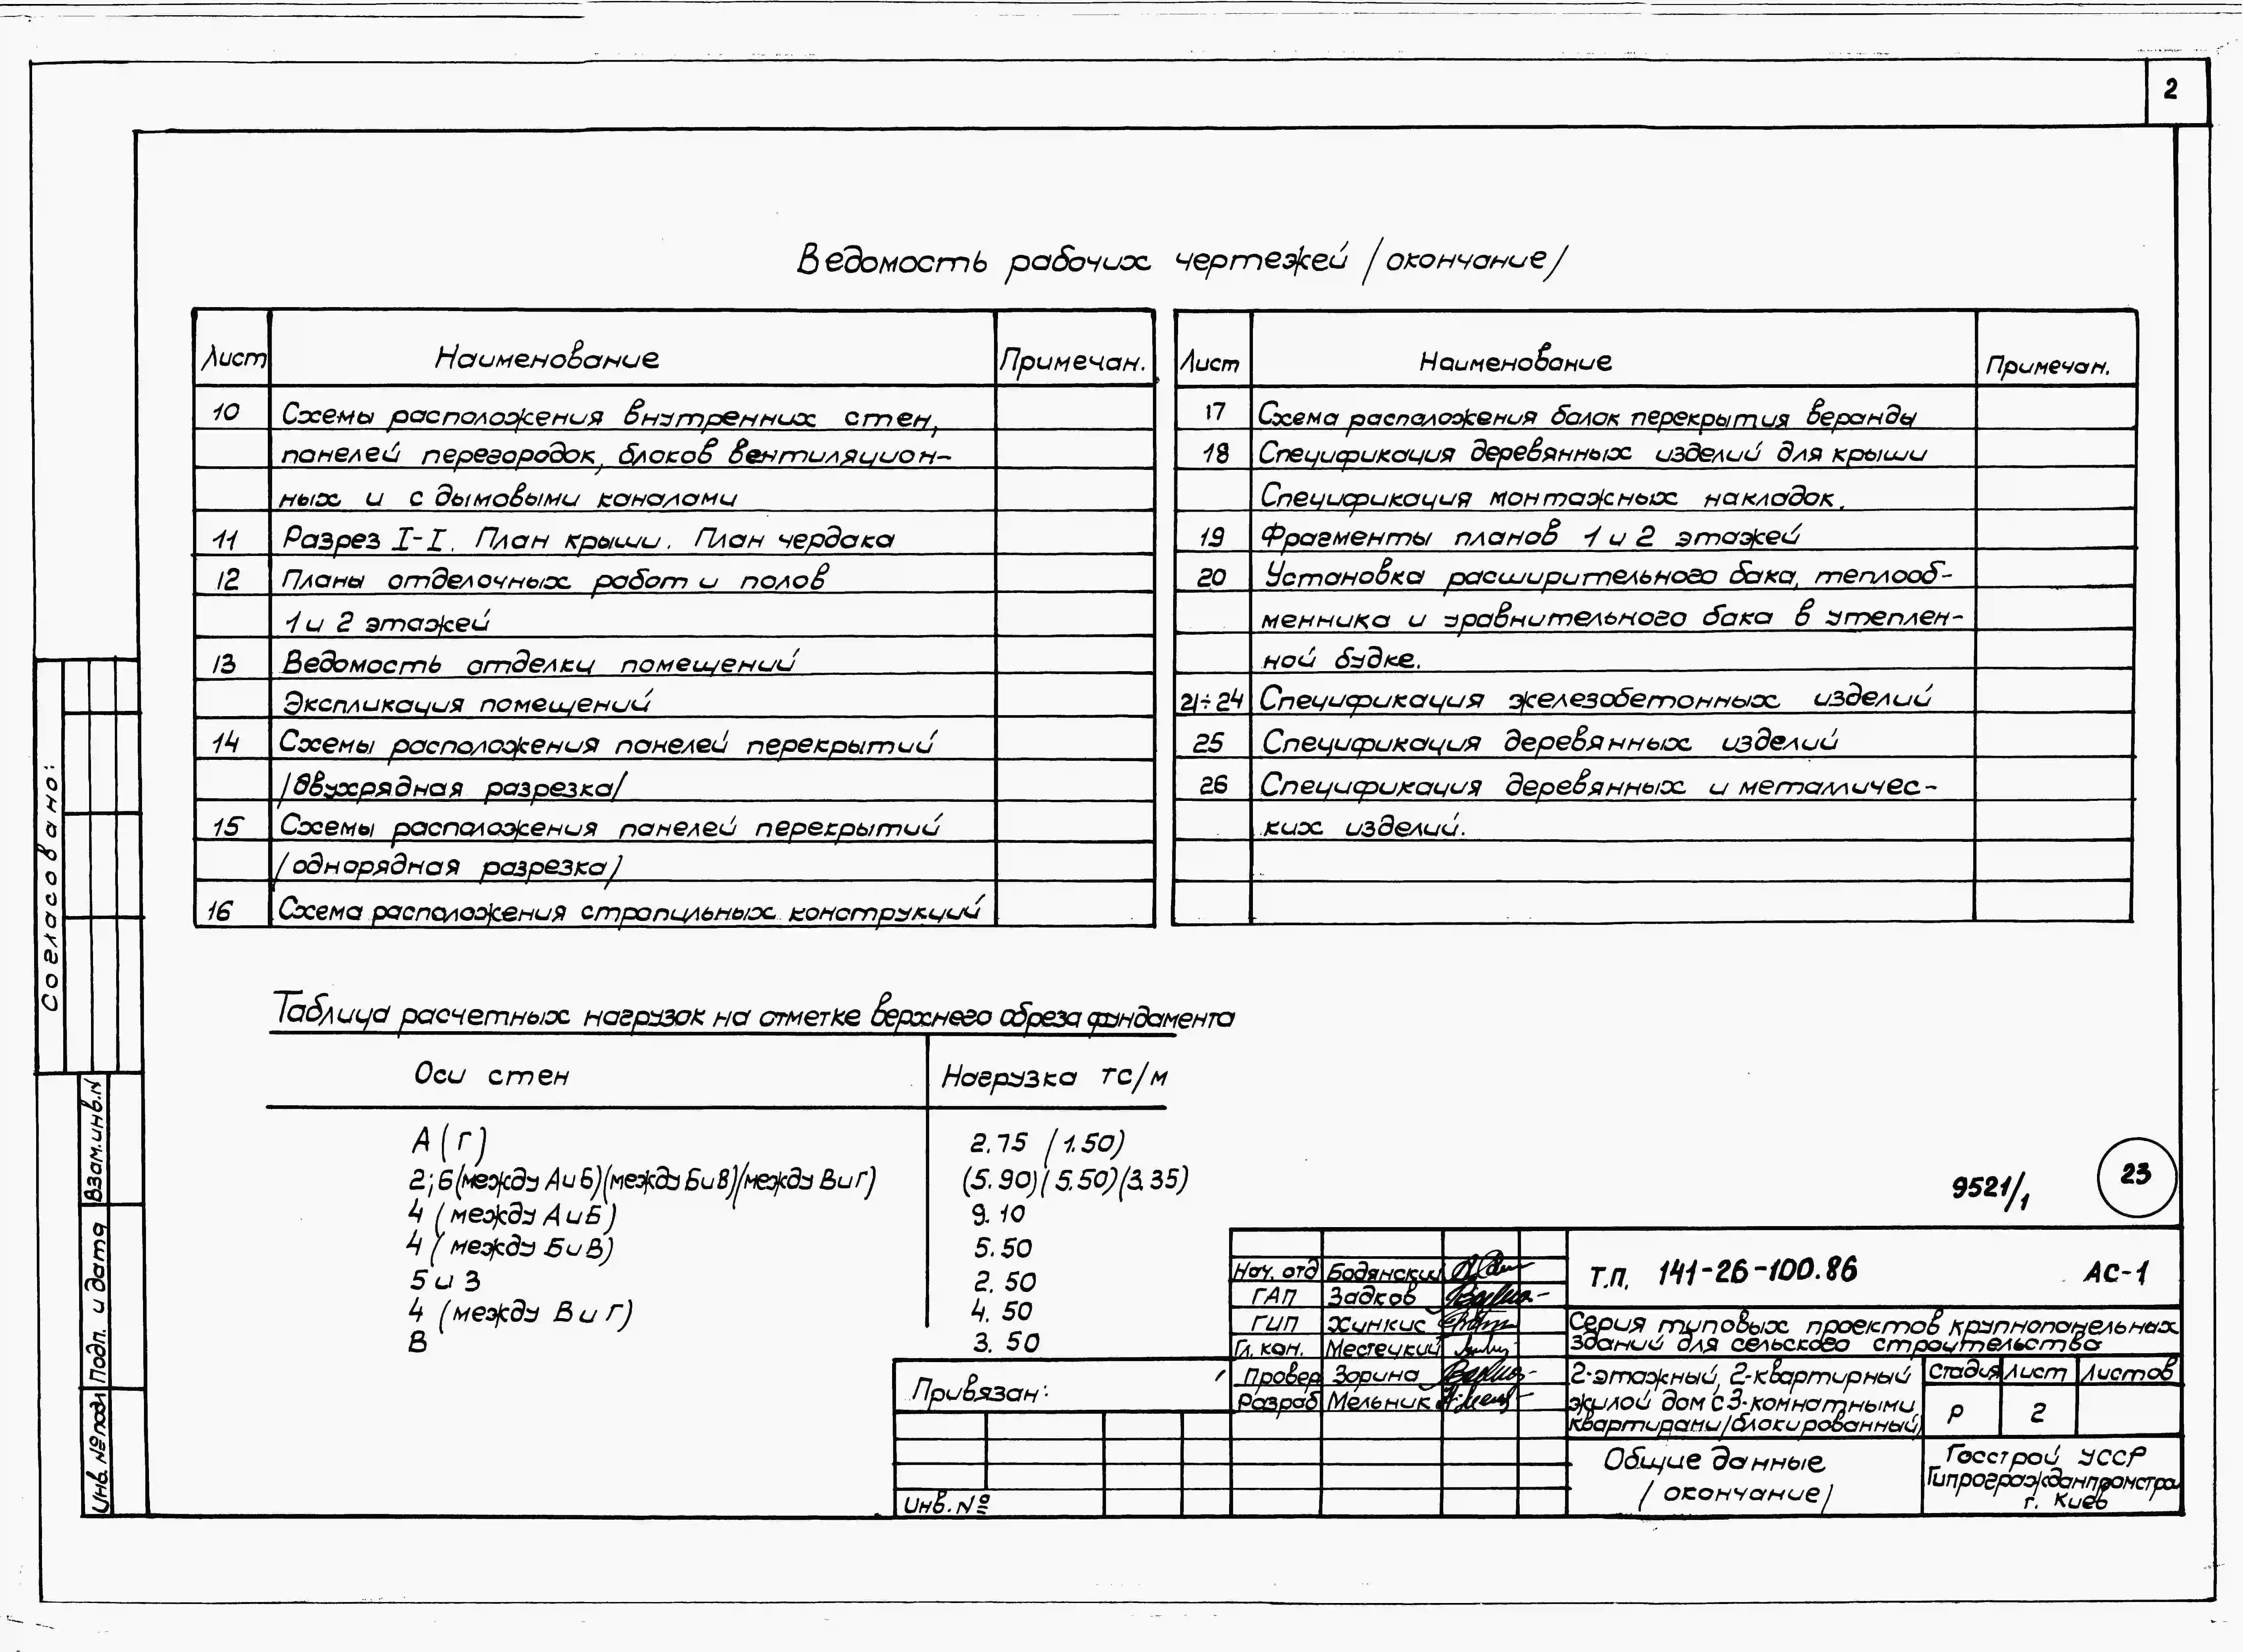 2
Ведомость рабочих чертежей /окончание/
Лист Наименование Примечан.
10 Схемы расположения внутренних стен,
панелей перегородок, блоков вентиляцион-
ных и с дымовыми каналами
11 Разрез I-I. План крыши. План чердака
12 Планы отделочных работ и полов
1 и 2 этажей
13 Ведомость отделки помещений
Экспликация помещений
14 Схемы расположения панелей перекрытий
/двухрядная разрезка/
15 Схемы расположения панелей перекрытий
/однорядная разрезка/
16 Схема расположения стропильных конструкций
Лист Наименование Примечан.
17 Схема расположения балок перекрытия веранды
18 Спецификация деревянных изделий для крыши
Спецификация монтажных накладок.
19 Фрагменты планов 1 и 2 этажей
20 Установка расширительного бака, теплооб-
менника и уравнительного бака в утеплен-
ной будке.
21÷24 Спецификация железобетонных изделий
25 Спецификация деревянных изделий
26 Спецификация деревянных и металличес-
ких изделий.
Таблица расчетных нагрузок на отметке верхнего обреза фундамента
Оси стен Нагрузка тс/м
А (Г) 2.75 (1.50)
2; 6 (между А и Б)(между Б и В)(между В и Г) (5.90)(5.50)(3.35)
4 (между А и Б) 9.10
4 (между Б и В) 5.50
5 и 3 2.50
4 (между В и Г) 4.50
В 3.50
Согласовано:
Взам.инв.N
Подп. и дата
Инв. № подл
9521/1
23
Привязан:
Инв. №
Нач. отд Бодянский
ГАП Задков
ГИП Хинкис
Гл. кон. Местецкий
Провер Зорина
Разраб Мельник
Т.П. 141-26-100.86 АС-1
Серия типовых проектов крупнопанельных
зданий для сельского строительства
2-этажный, 2-квартирный
жилой дом с 3-комнатными
квартирами/блокированный/
Стадия Лист Листов
Р 2
Общие данные
/окончание/
Госстрой УССР
Гипрогражданпромстрой
г. Киев